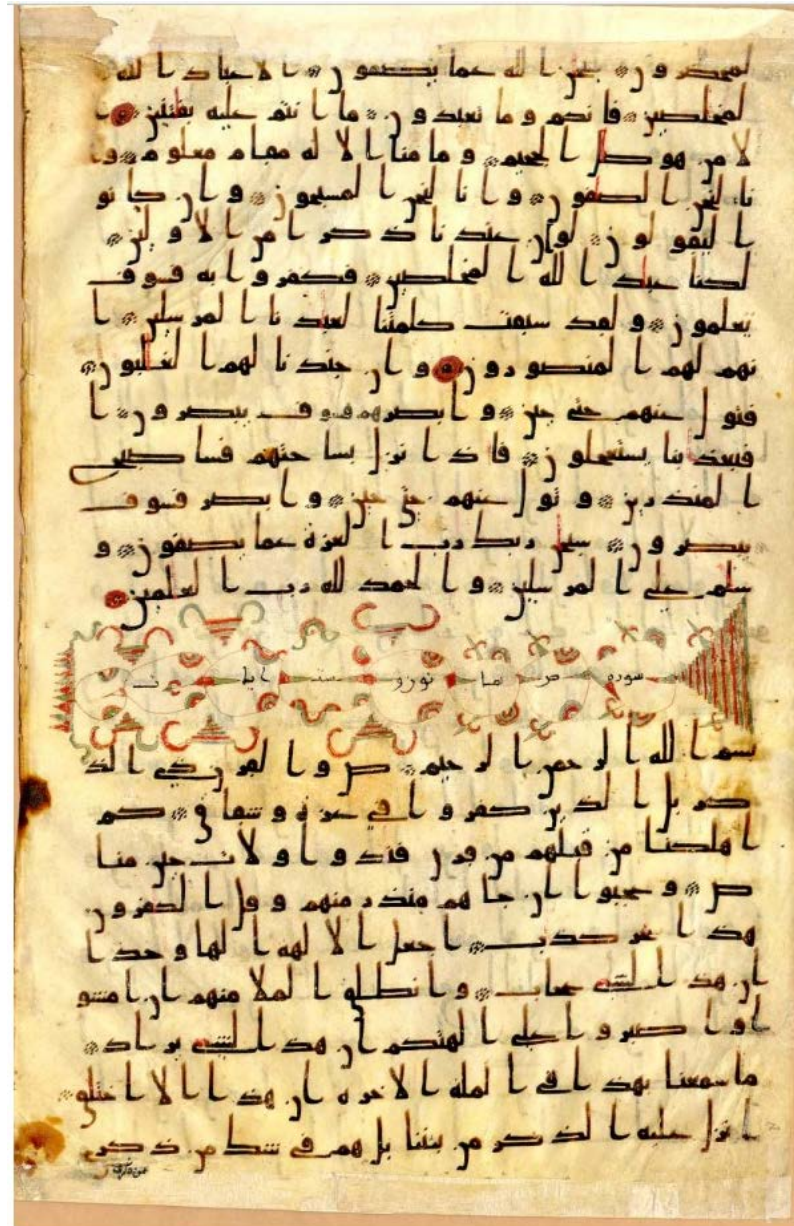 لمحضرون سبحن الله عما يصفون الا عباد الله
لمخلصين فانكم وما تعبدون ما انتم عليه بفتنين ا
لا من هو صل الجحيم وما منا الا له مقام معلوم وا
نا لنحن الصفون وانا لنحن المسبحون وان كانو
ا ليقولون لو ان عندنا ذكرا من الاولين
لكنا عباد الله المخلصين فكفروا به فسوف
يعلمون ولقد سبقت كلمتنا لعبدنا المرسلين ا
نهم لهم المنصورون وان جندنا لهم الغلبون
فتول عنهم حتى حين وابصرهم فسوف يبصرون ا
فبعذابنا يستعجلون فاذا نزل بساحتهم فسا صبح
المنذرين وتول عنهم حتى حين وابصر فسوف
يبصرون سبحن ربك رب العزة عما يصفون و
سلم على المرسلين والحمد لله رب العلمين
سوره ص ثمانون و ست ايات
بسم الله الرحمن الرحيم ص والقران ذي الذ
كر بل الذين كفروا في عزة وشقاق كم
اهلكنا من قبلهم من قرن فنادوا ولات حين منا
ص وعجبوا ان جاهم منذر منهم وقال الكفرون
هذا سحر كذاب اجعل الالهة الها وحدا
ان هذا لشي عجاب وانطلق الملا منهم ان امشو
ا واصبروا على الهتكم ان هذا لشي يراد
ما سمعنا بهذا في الملة الاخرة ان هذا الا اختلق
ا نزل عليه الذكر من بيننا بل هم في شك من ذكري